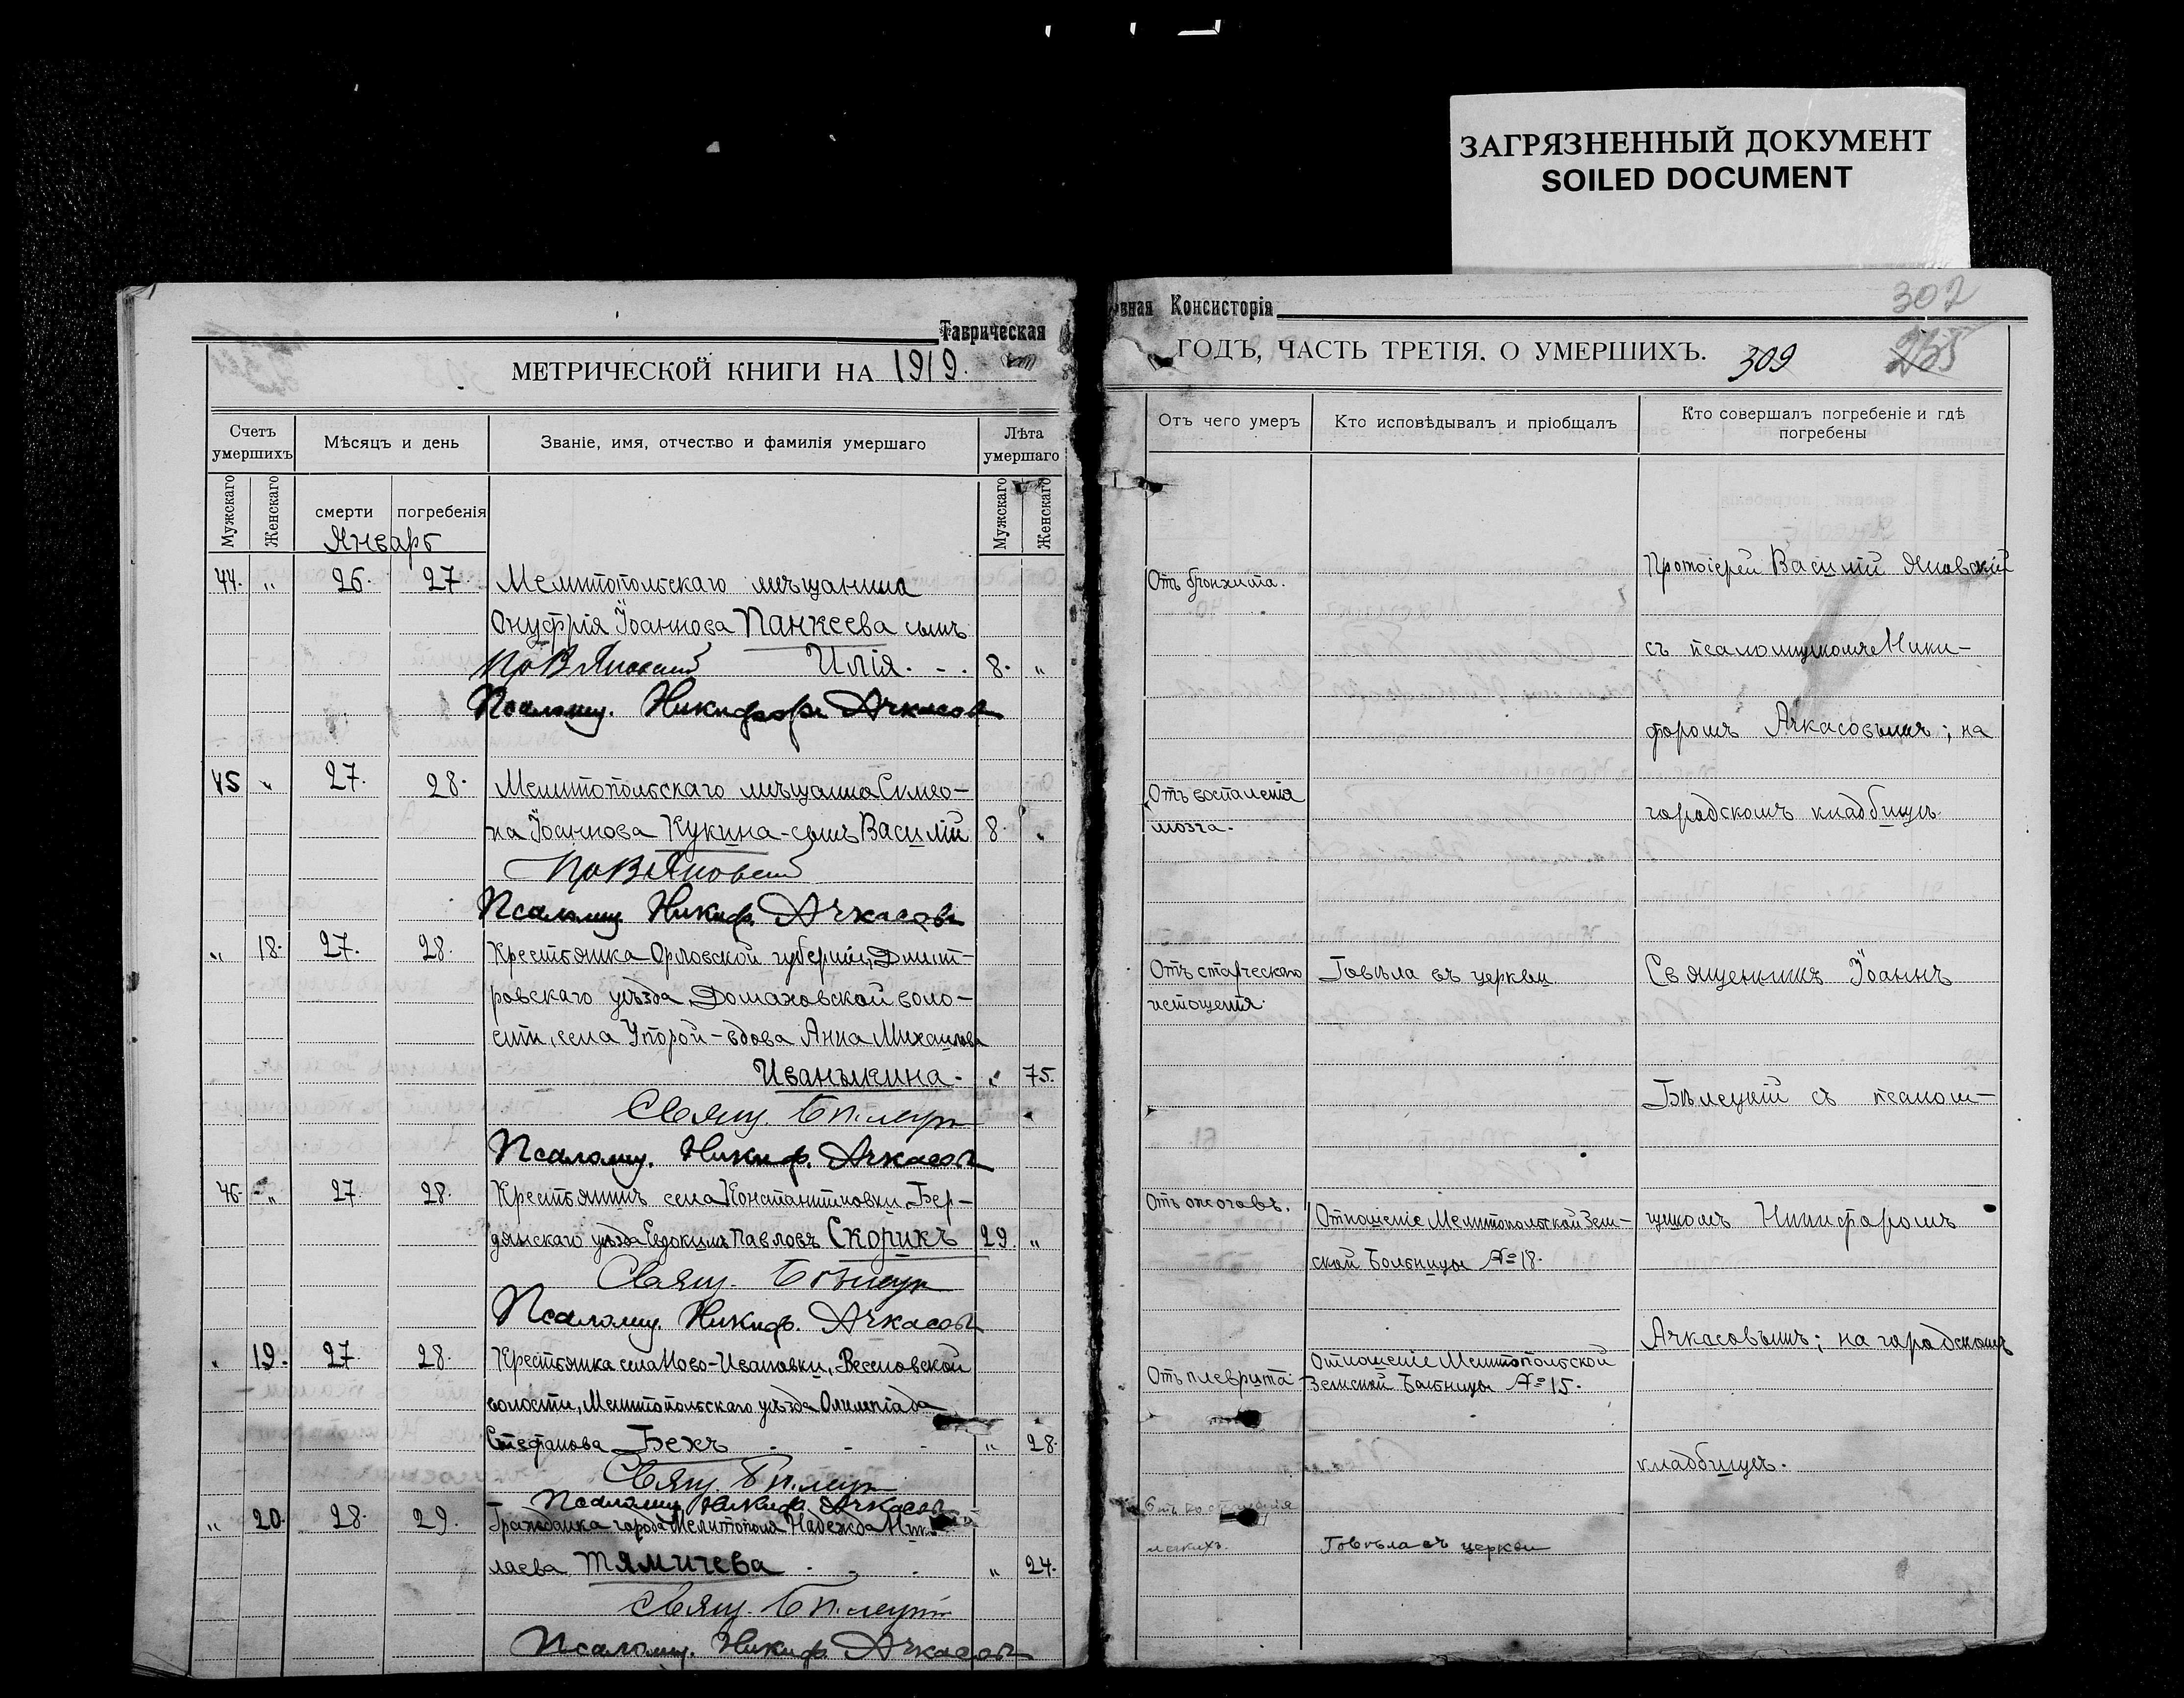 ЗАГРЯЗНЕННЫЙ ДОКУМЕНТ
SOILED DOCUMENT
Таврическая
МЕТРИЧЕСКОЙ КНИГИ НА 1919.
Счетъ умершихъ
Мѣсяцъ и день
Званіе, имя, отчество и фамилія умершаго
Лѣта умершаго
Мужскаго
Женскаго
смерти
погребенія
Мужскаго
Женскаго
Январь
44. " 26. 27. Мелитопольскаго мѣщанина
Онуфрія Іоаннова Панкеева сынъ
Пр В Яновскій Илія. - . 8. "
Псаломщ. Никифоръ Ачкасовъ
45 " 27. 28. Мелитопольскаго мѣщанина Симео-
на Іоаннова Кукина - сынъ Василій 8. "
Пр В Яновскій
Псаломщ. Никиф. Ачкасовъ
" 18. 27. 28. Крестьянка Орловской губерніи, Дмит-
ровскаго уѣзда, Домаховской воло-
сти, села Упорой - вдова Анна Михаилова
Иванькина. " 75.
Свящ. Бѣлецкій
Псаломщ. Никиф. Ачкасовъ
46. " 27. 28. Крестьянинъ села Константиновки, Бер-
дянскаго уѣзда Евдокимъ Павловъ Скорикъ 29. "
Свящ. Бѣлецкій
Псаломщ. Никиф. Ачкасовъ
" 19. 27. 28. Крестьянка села Ново-Ивановки, Веселовской
волости, Мелитопольскаго уѣзда Олимпіада
Стефанова Бехъ - - - " 28.
Свящ. Бѣлецкій
Псаломщ. Никиф. Ачкасовъ
" 20. 28. 29. Гражданка города Мелитополя Надежда Нико
лаева Тямичева . . . " 24.
Свящ. Бѣлецкій
Псаломщ. Никиф. Ачкасовъ
вная Консисторія
302
ГОДЪ, ЧАСТЬ ТРЕТІЯ. О УМЕРШИХЪ.
309
255
Отъ чего умеръ
Кто исповѣдывалъ и пріобщалъ
Кто совершалъ погребеніе и гдѣ погребены
Отъ бронхита.
Протоіерей Василій Яновскій
съ псаломщикомъ Ники-
форомъ Ачкасовымъ; на
Отъ воспаленія
мозга.
городскомъ кладбищѣ.
Отъ старческаго
истощенія.
Говѣла въ церкви.
Священникъ Іоаннъ
Бѣлецкій съ псалом-
Отъ ожоговъ.
Отношеніе Мелитопольской Зем-
ской Больницы № 18.
щикомъ Никифоромъ
Ачкасовымъ; на городскомъ
Отъ плеврита.
Отношеніе Мелитопольской
Земской Больницы № 15.
кладбищѣ.
Отъ воспаленія
легкихъ.
Говѣла въ церкви